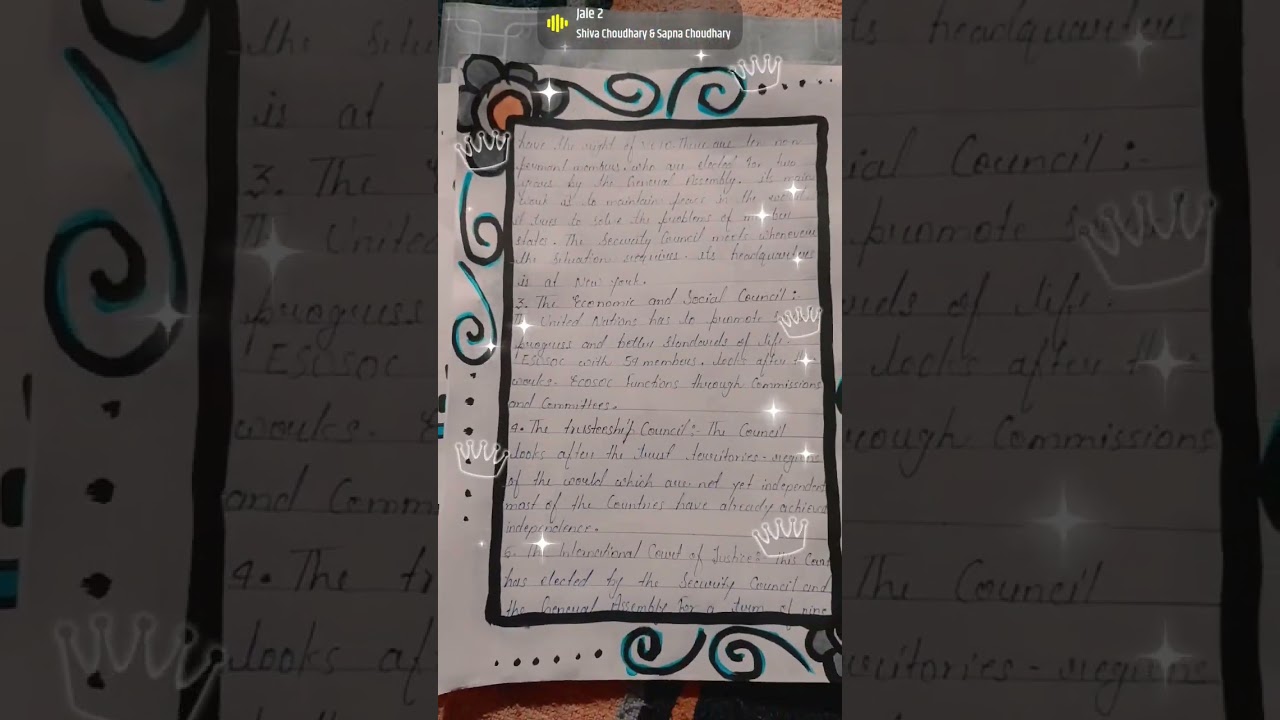 Jale 2
Shiva Choudhary & Sapna Choudhary
have the right of veto. There are ten non
permant members. who are elected for two
years by the General Assembly. its main
work is to maintain peace in the
it tries to solve the problems of member
state. The Security Council meets whenever
the situation requires. its headquarters
is at New york.
3. The Economic and Social Council :-
The United Nations has to promote
progress and better standards of life.
ESCSOC with 54 members. looks after the
works. Ecosoc Functions through Commissions
and Committees.
4. The trusteeship Council :- The Council
looks after the trust territories - regions
of the world which are not yet independent
most of the Countries have already achieved
independence.
The International Court of Justice :- This Court
has elected by the Security Council and
the General Assembly For a term of nine